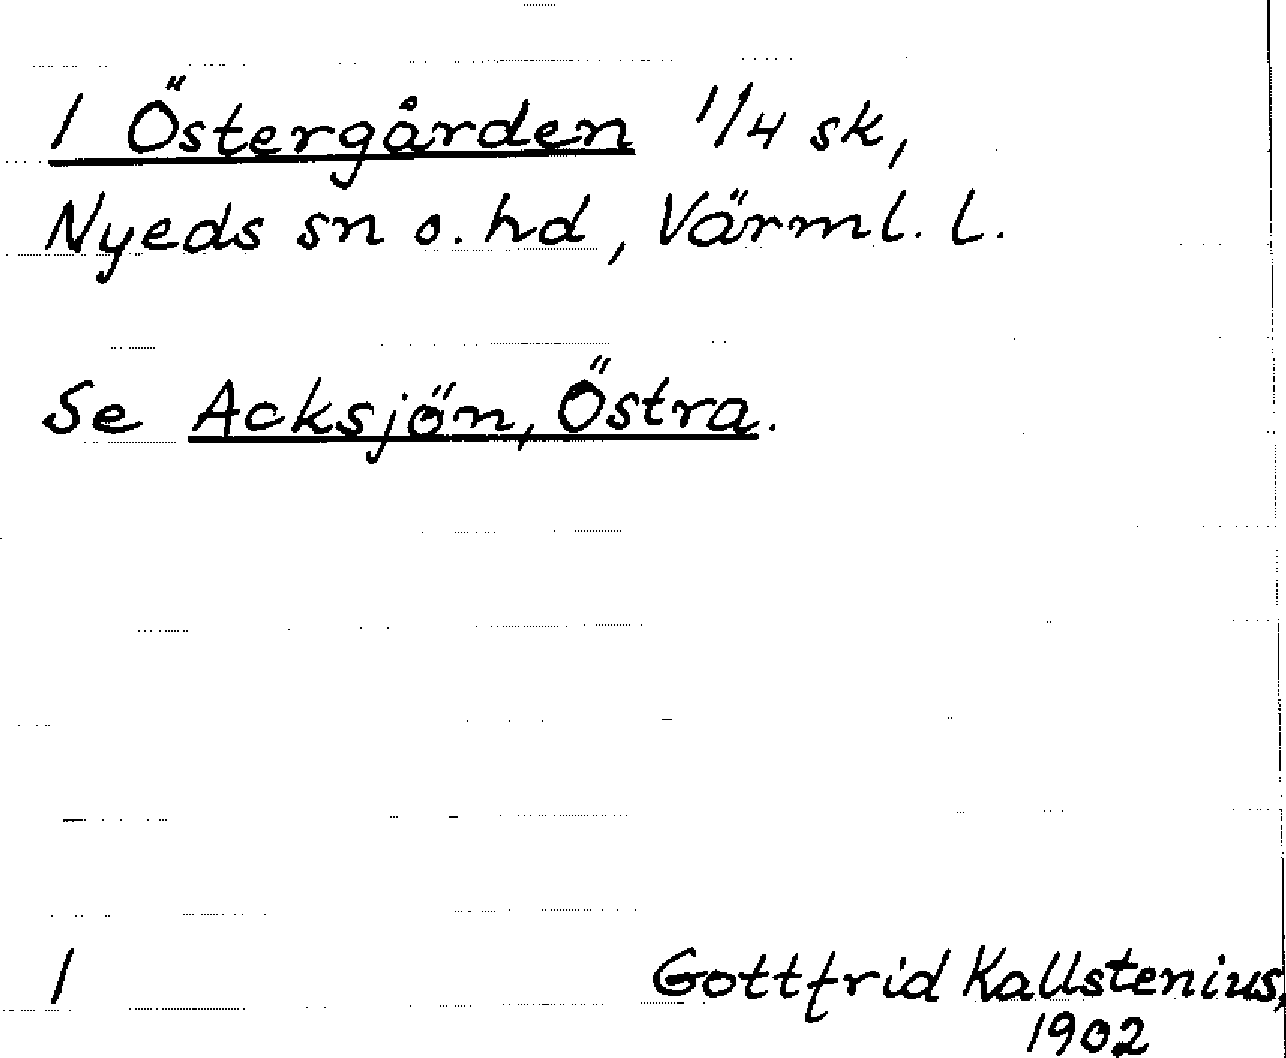 1 Östergården 1/4 sk,
Nyeds sn o. hd, Värml. l.
Se Acksjön, Östra.
1
Gottfrid Kallstenius,
1902